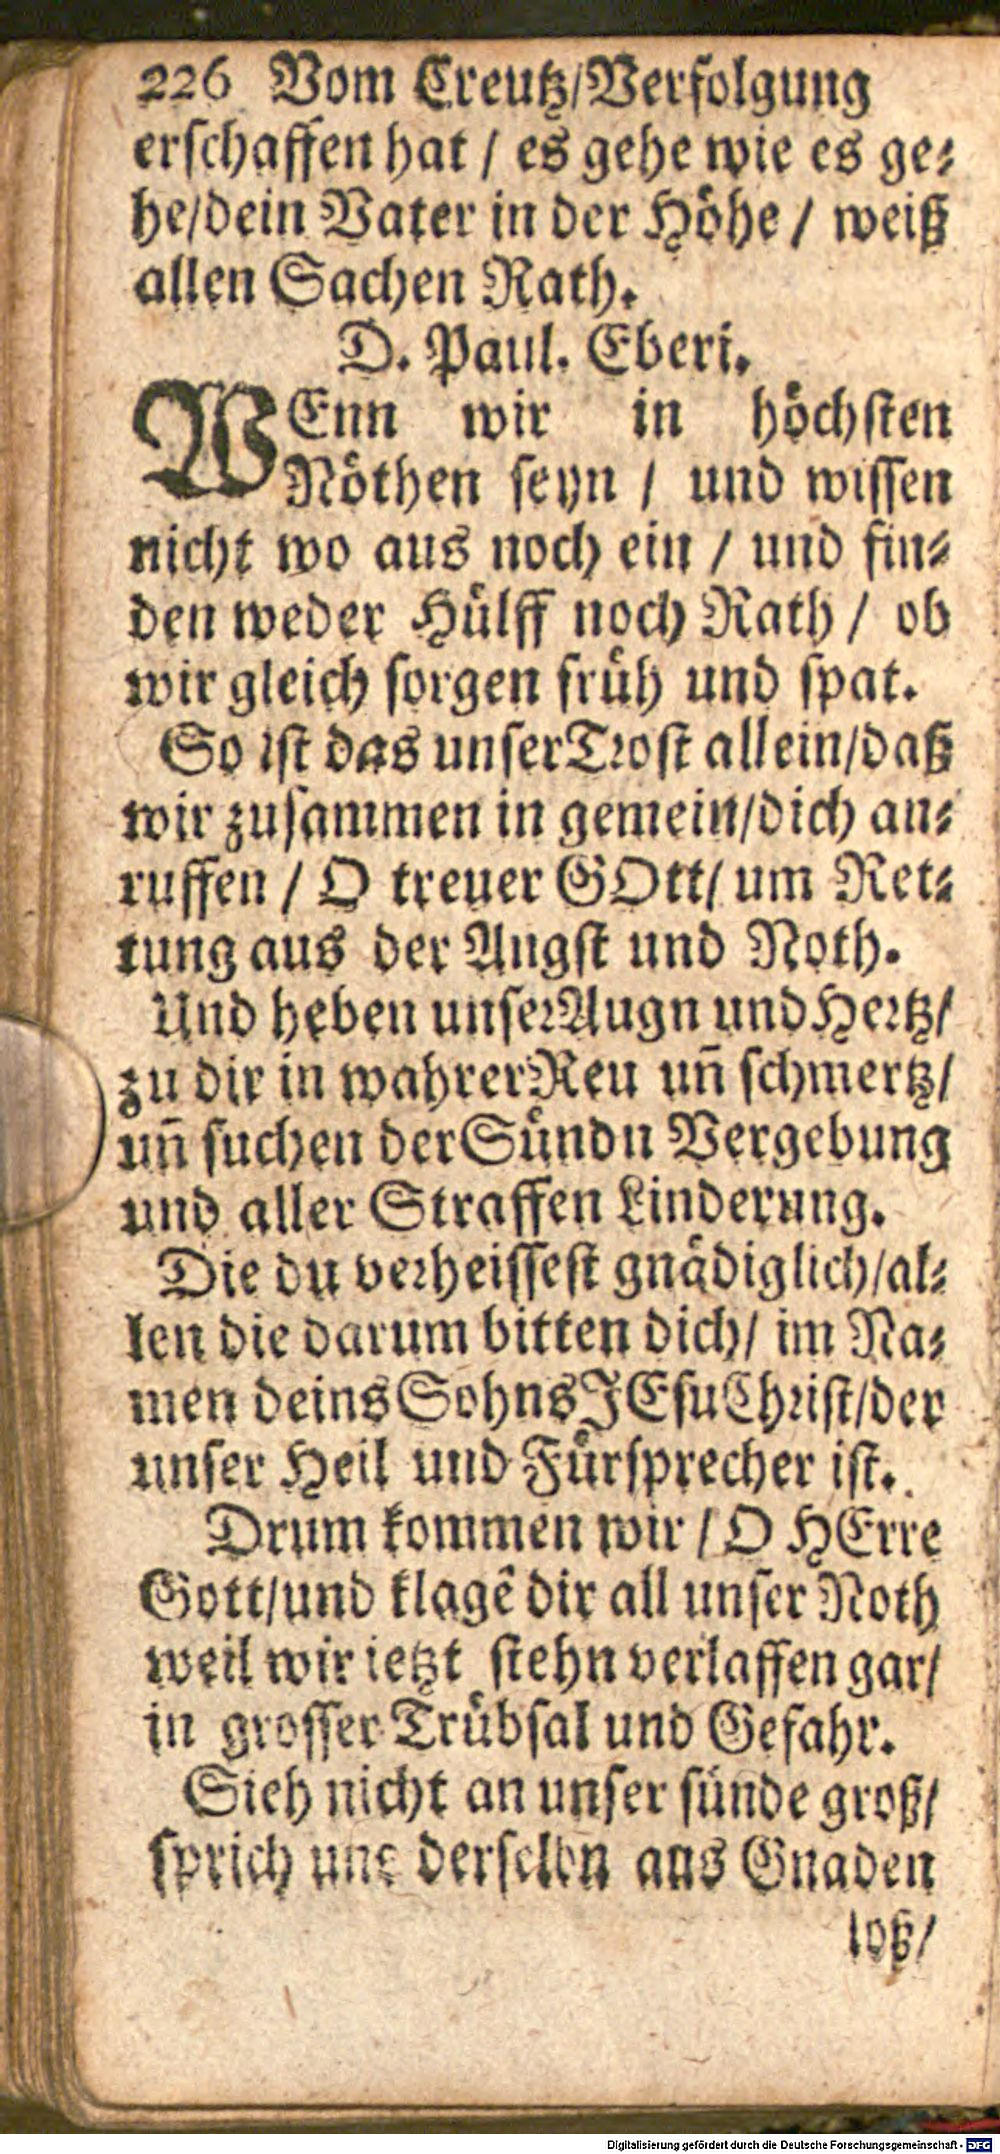 226 Vom Creutz/Verfolgung
erschaffen hat / es gehe wie es ge-
he/dein Vater in der Höhe / weiß
allen Sachen Rath.
D. Paul. Eberi.
WEnn wir in höchsten
Nöthen seyn / und wissen
nicht wo aus noch ein / und fin-
den weder Hülff noch Rath / ob
wir gleich sorgen früh und spat.
So ist das unser Trost allein/daß
wir zusammen in gemein/dich an-
ruffen / O treuer GOtt/ um Ret-
tung aus der Angst und Noth.
Und heben unser Augn und Hertz/
zu dir in wahrer Reu uñ schmertz/
uñ suchen der Sündn Vergebung
und aller Straffen Linderung.
Die du verheissest gnädiglich/al-
len die darum bitten dich/ im Na-
men deins Sohns JEsu Christ/der
unser Heil und Fürsprecher ist.
Drum kommen wir / O HErre
Gott/und klagẽ dir all unser Noth
weil wir ietzt stehn verlassen gar/
in grosser Trübsal und Gefahr.
Sieh nicht an unser sünde groß/
sprich uns derselbn aus Gnaden
loß/
Digitalisierung gefördert durch die Deutsche Forschungsgemeinschaft - DFG